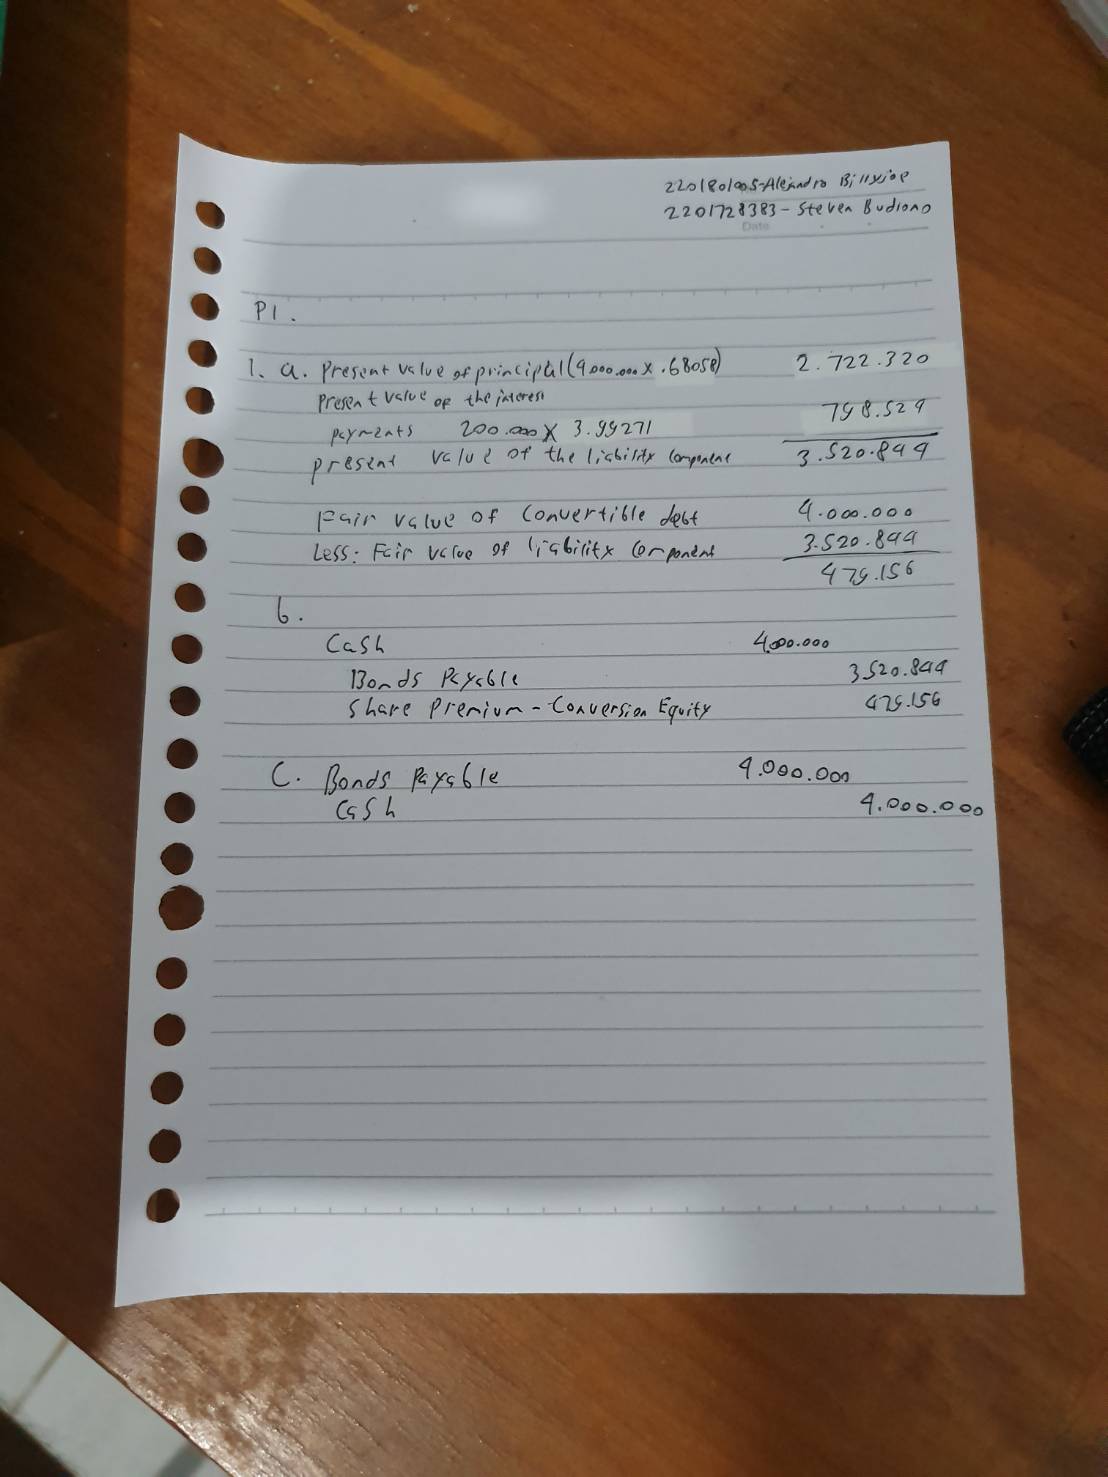 2201801005-Alejandro Billyjoe
2201728383-Steven Budiono
Date
P1.
1. a. Present value of principal (4.000.000 x .68058) 2.722.320
Present value of the interest
payments 200.000 x 3.99271 798.524
present value of the liability component 3.520.844
Fair value of Convertible debt 4.000.000
Less: Fair value of liability component 3.520.844
479.156
b.
Cash 4.000.000
Bonds Payable 3.520.844
Share Premium - Conversion Equity 479.156
C. Bonds Payable 4.000.000
Cash 4.000.000